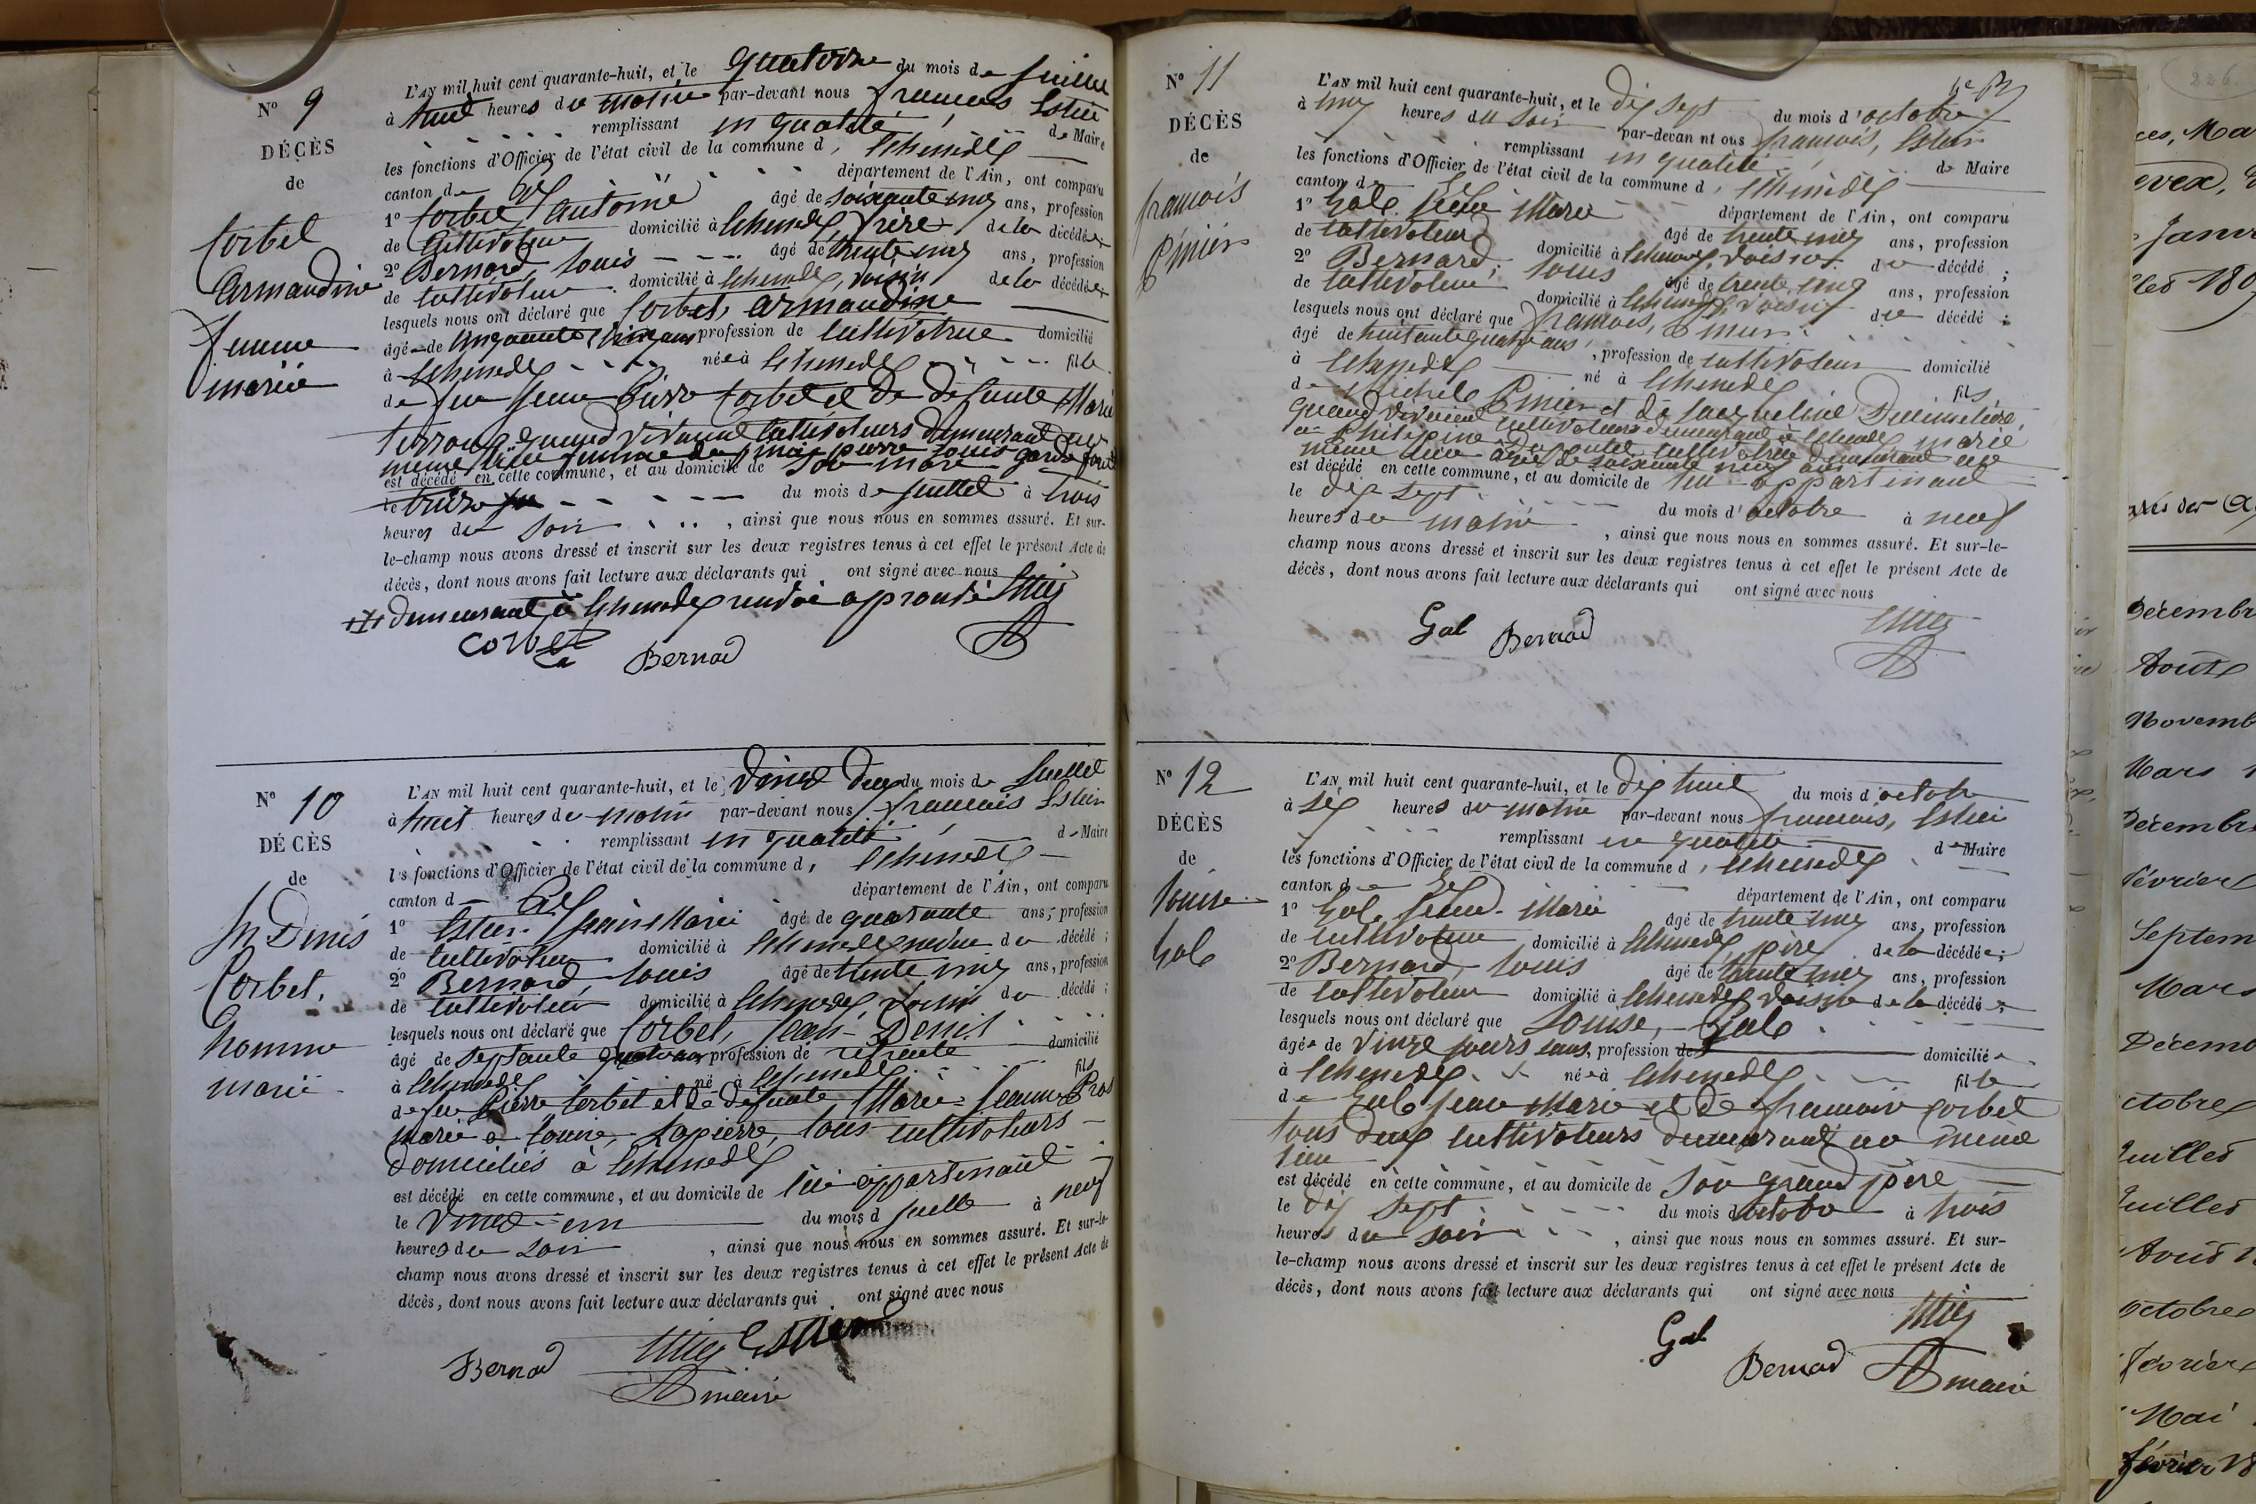 N° 9
DÉCÈS
de
Corbet
Armandine
femme
mariée
L'AN mil huit cent quarante-huit, et le quatorze du mois de Juillet
à huit heures du matin par-devant nous françois Estier
remplissant en qualité de Maire
les fonctions d'Officier de l'état civil de la commune d' Echenevex
canton de Gex département de l'Ain, ont comparu
1° Corbet Antoine âgé de soixante cinq ans, profession
de Cultivateur domicilié à Echenevex, frère de la décédée;
2° Bernard, Louis âgé de trente cinq ans, profession
de cultivateur domicilié à Echenevex, voisin de la décédée
lesquels nous ont déclaré que Corbet, armandine
âgée de cinquante ans profession de cultivatrice domicilié
à Echenevex née à Echenevex fille
de feu Jean Pierre Corbet et de défunte Marie
quand vivaient cultivateurs demeurant au
même lieu femme de pierre Louis garde
est décédé en cette commune, et au domicile de son mari
le treize du mois de Juillet à trois
heures du soir, ainsi que nous nous en sommes assuré. Et sur-
le-champ nous avons dressé et inscrit sur les deux registres tenus à cet effet le présent Acte de
décès, dont nous avons fait lecture aux déclarants qui ont signé avec nous
demeurant à Echenevex renvoi approuvé
Corbet
Bernad
N° 10
DÉCÈS
de
Jn Denis
Corbet,
homme
marié
L'AN mil huit cent quarante-huit, et le vingt deux du mois de Juillet
à huit heures du matin par-devant nous françois Estier
remplissant en qualité de Maire
les fonctions d'Officier de l'état civil de la commune d' Echenevex
canton de Gex département de l'Ain, ont comparu
1° Estier Marie âgé de quarante ans, profession
de cultivateur domicilié à Echenevex neveu du décédé;
2° Bernard, Louis âgé de trente cinq ans, profession
de cultivateur domicilié à Echenevex, voisin du décédé;
lesquels nous ont déclaré que Corbet, Jean Denis
âgé de septante quatre ans profession de retraité domicilié
à Echenevex né à Echenevex fils
de feu Pierre Corbet et de défunte Marie Jeanne Pros
marié a Lapierre, tous cultivateurs
domiciliés à Echenevex
est décédé en cette commune, et au domicile de lui appartenant
le vingt-un du mois d juillet à neuf
heures du soir, ainsi que nous nous en sommes assuré. Et sur-le-
champ nous avons dressé et inscrit sur les deux registres tenus à cet effet le présent Acte de
décès, dont nous avons fait lecture aux déclarants qui ont signé avec nous
Bernad Estier
maire
N° 11
DÉCÈS
de
francois
Pinier
L'AN mil huit cent quarante-huit, et le dix sept du mois d'octobre
à cinq heures du soir par-devant nous francois, Estier
remplissant en qualité de Maire
les fonctions d'Officier de l'état civil de la commune d' Echenevex
canton de Gex département de l'Ain, ont comparu
1° Gal Jean Marie âgé de trente cinq ans, profession
de cultivateur domicilié à Echenevex, voisin du décédé;
2° Bernard, Louis âgé de trente cinq ans, profession
de cultivateur domicilié à Echenevex, voisin du décédé;
lesquels nous ont déclaré que francois, Pinier
âgé de huitante quatre ans, profession de cultivateur domicilié
à Echenevex né à Echenevex fils
de Michel Pinier et de Jacqueline
quand vivaient cultivateurs demeurant à Echenevex marié
a Philipine cultivatrice demeurant au
même lieu âgée de soixante cinq ans
est décédé en cette commune, et au domicile de lui appartenant
le dix sept du mois d'octobre à neuf
heures du matin, ainsi que nous nous en sommes assuré. Et sur-le-
champ nous avons dressé et inscrit sur les deux registres tenus à cet effet le présent Acte de
décès, dont nous avons fait lecture aux déclarants qui ont signé avec nous
Gal Bernad
N° 12
DÉCÈS
de
Louise
Gal
L'AN mil huit cent quarante-huit, et le dix huit du mois d'octobre
à six heures du matin par-devant nous francois, Estier
remplissant en qualité de Maire
les fonctions d'Officier de l'état civil de la commune d' Echenevex
canton de Gex département de l'Ain, ont comparu
1° Gal Jean-Marie âgé de trente cinq ans, profession
de cultivateur domicilié à Echenevex, père de la décédée;
2° Bernard, Louis âgé de trente cinq ans, profession
de cultivateur domicilié à Echenevex, voisin de la décédée;
lesquels nous ont déclaré que Louise, Gal
âgée de vingt jours sans, profession de domiciliée
à Echenevex née à Echenevex fille
de Gal Jean Marie et de Corbet
tous deux cultivateurs demeurant au même
lieu
est décédé en cette commune, et au domicile de son grand père
le dix sept du mois d'octobre à trois
heures du soir, ainsi que nous nous en sommes assuré. Et sur-
le-champ nous avons dressé et inscrit sur les deux registres tenus à cet effet le présent Acte de
décès, dont nous avons fait lecture aux déclarants qui ont signé avec nous
Gal
Bernad maire
226
Janv
Décembr
Août
Novemb
Mars
Décembre
février
Septem
Mars
Décemb
octobre
Juillet
Juillet
Août
octobre
février
Mai
février 18